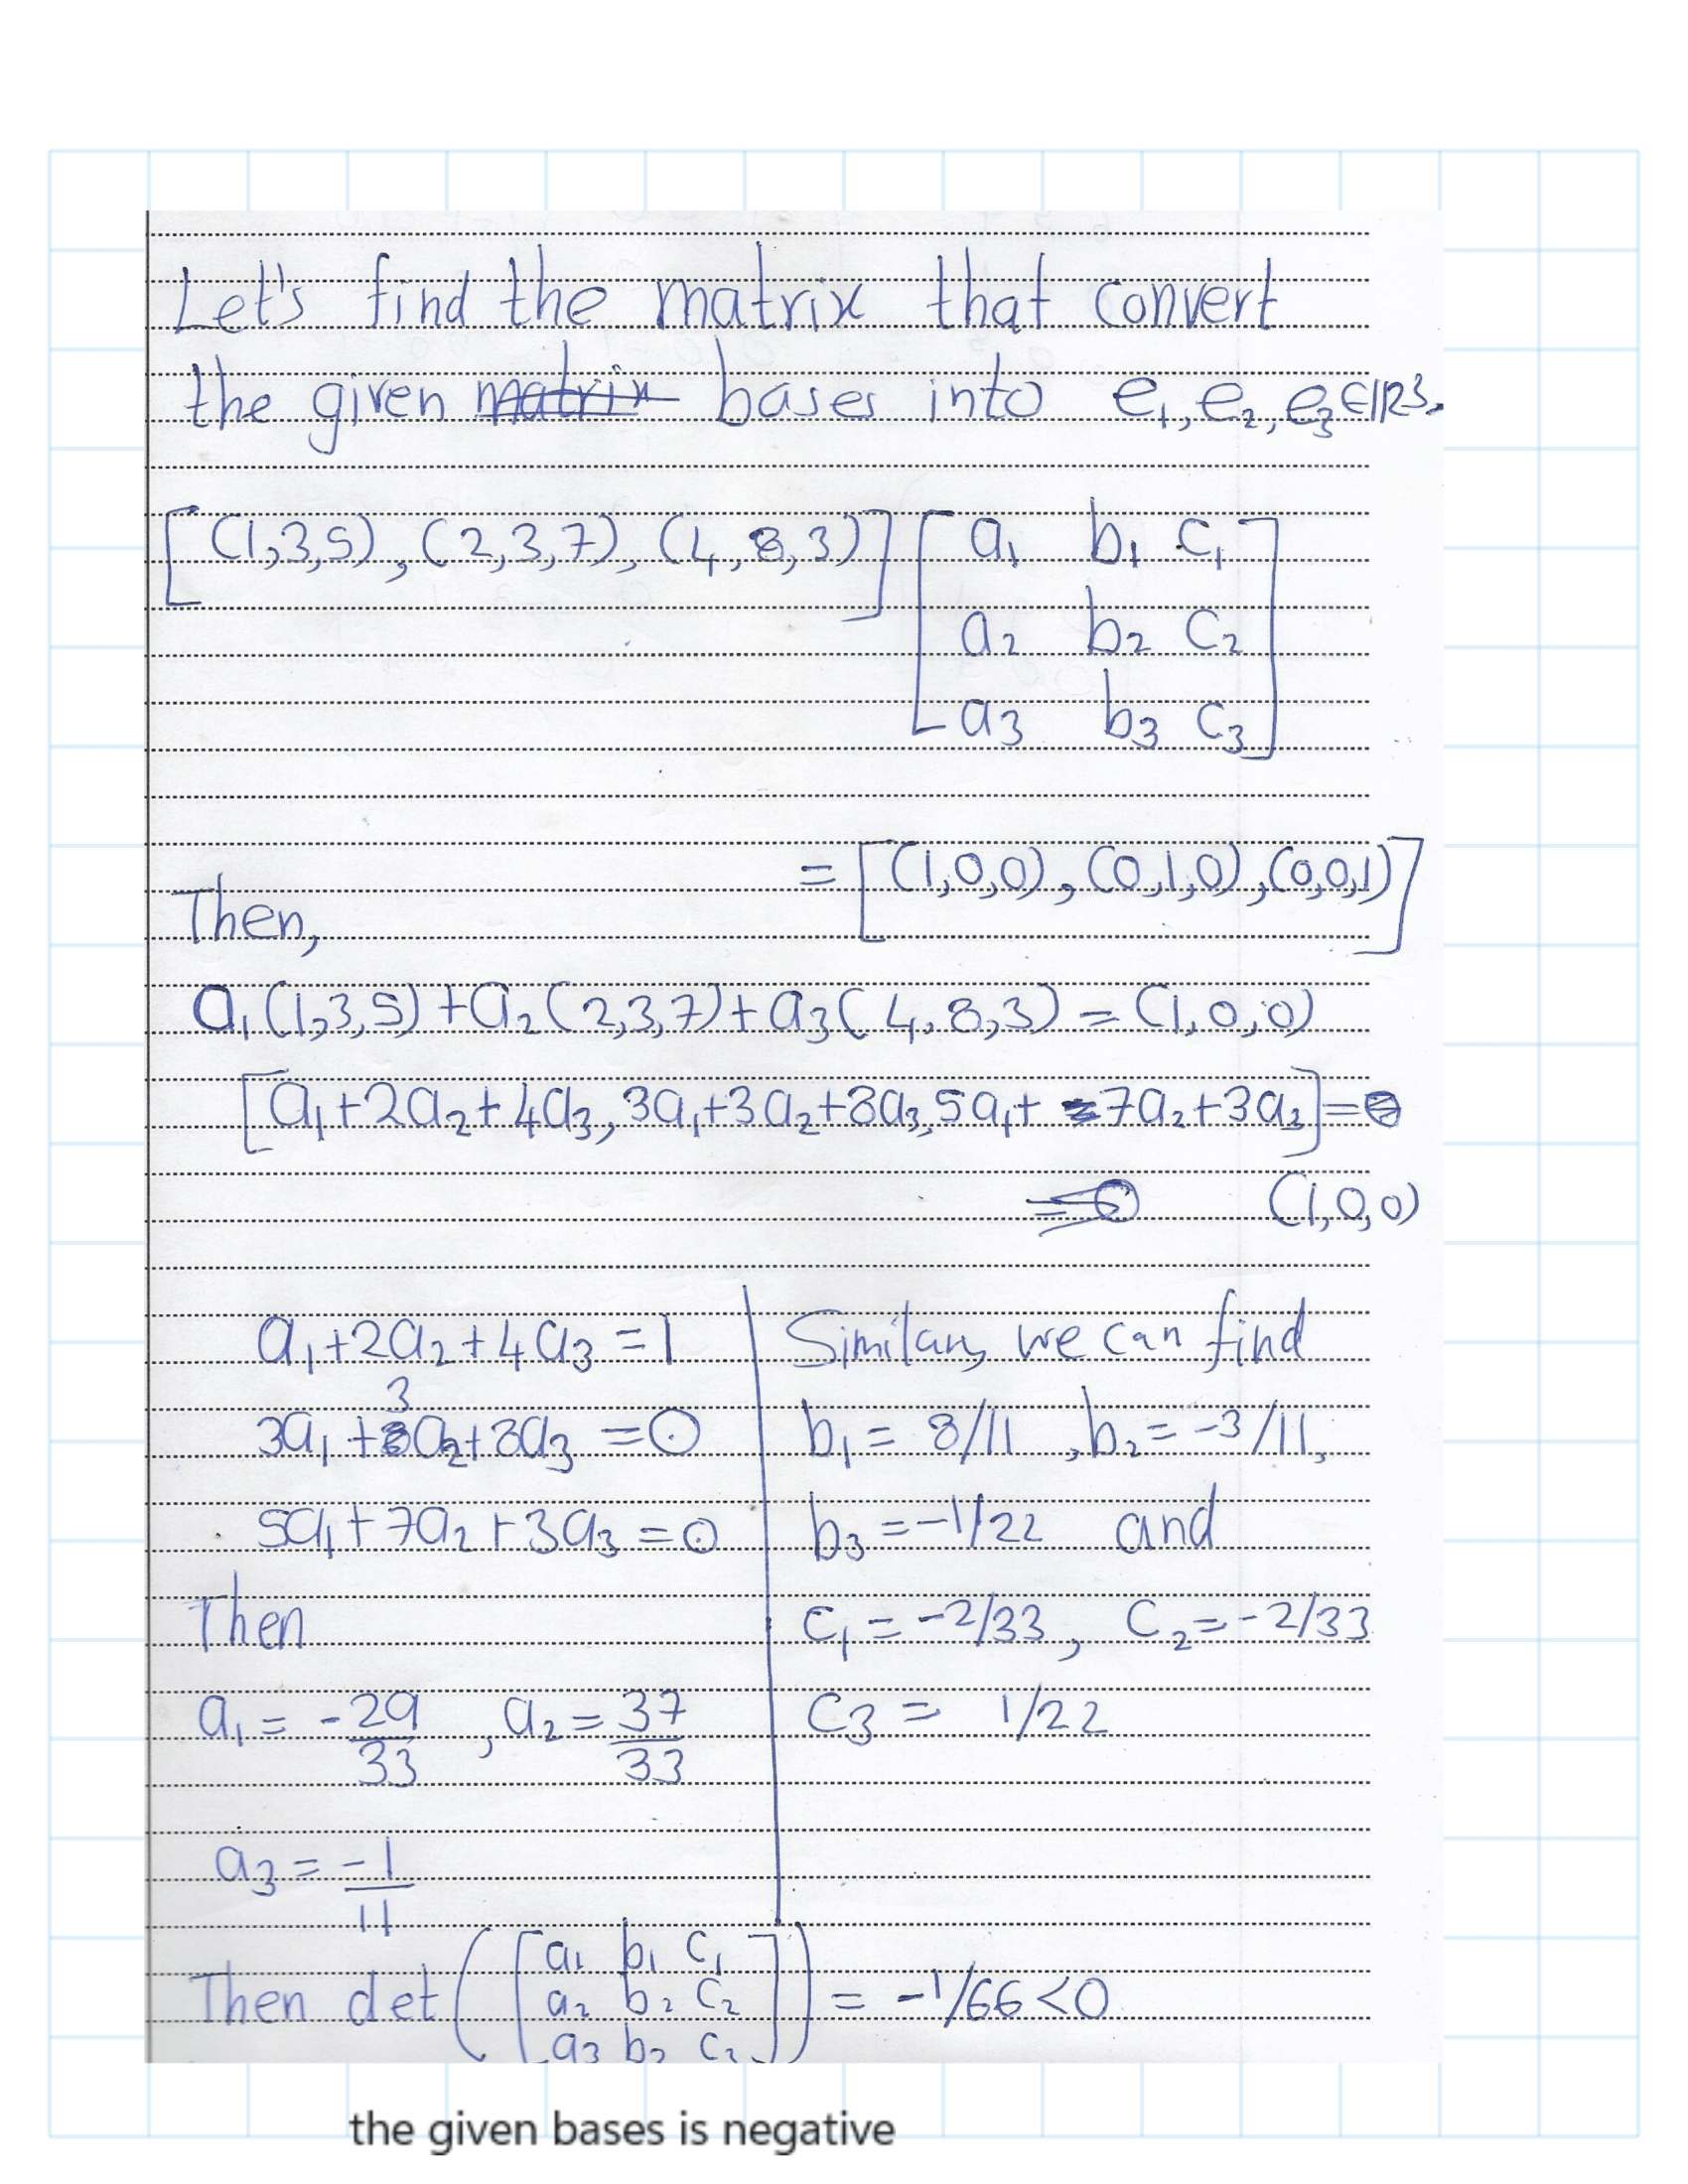 Let's find the matrix that convert
the given matrix bases into e₁, e₂, e₃ ∈ ℝ³.
[(1,3,5), (2,3,7), (4,8,3)] [a₁ b₁ c₁
a₂ b₂ c₂
a₃ b₃ c₃]
= [(1,0,0), (0,1,0), (0,0,1)]
Then,
a₁(1,3,5) + a₂(2,3,7) + a₃(4,8,3) = (1,0,0)
[a₁+2a₂+4a₃, 3a₁+3a₂+8a₃, 5a₁+7a₂+3a₃] =
(1,0,0)
a₁+2a₂+4a₃ = 1
3a₁+3a₂+8a₃ = 0
5a₁+7a₂+3a₃ = 0
Then
a₁ = -29/33, a₂ = 37/33
a₃ = -1/11
Similar, we can find
b₁ = 8/11, b₂ = -3/11,
b₃ = -1/22 and
c₁ = -2/33, c₂ = -2/33
c₃ = 1/22
Then det([a₁ b₁ c₁
a₂ b₂ c₂
a₃ b₃ c₃]) = -1/66 < 0
the given bases is negative